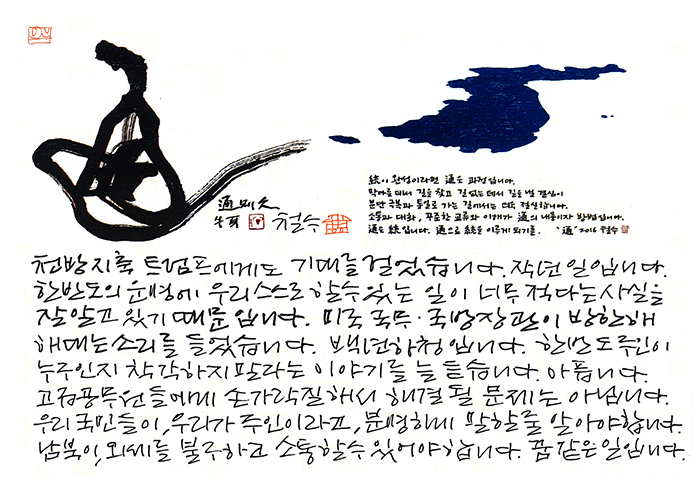 通則久
철수
統이 완성이라면 通은 과정입니다.
막다른 데서 길을 찾고 길 없는 데서 길을 낼 결심이
분단 극복과 통일로 가는 길에서는 더욱 절실합니다.
소통과 대화, 꾸준한 교류와 이해가 通의 내용이자 방법입니다.
通은 統입니다. 通으로 統을 이루게 되기를. '通' 2016 철수
천방지축 트럼프에게도 기대를 걸었습니다. 작년 일입니다.
한반도의 운명에 우리 스스로 할 수 있는 일이 너무 적다는 사실을
잘 알고 있기 때문입니다. 미국 국무·국방장관이 방한해
해대는 소리를 들었습니다. 백년하청입니다. 한반도 주인이
누구인지 착각하지 말라는 이야기를 늘 듣습니다. 아픕니다.
고급공무원들에게 손가락질해서 해결될 문제는 아닙니다.
우리 국민들이, 우리가 주인이라고, 분명하게 말할 줄 알아야 합니다.
남북이, 외세를 불구하고 소통할 수 있어야 합니다. 꿈같은 일입니다.